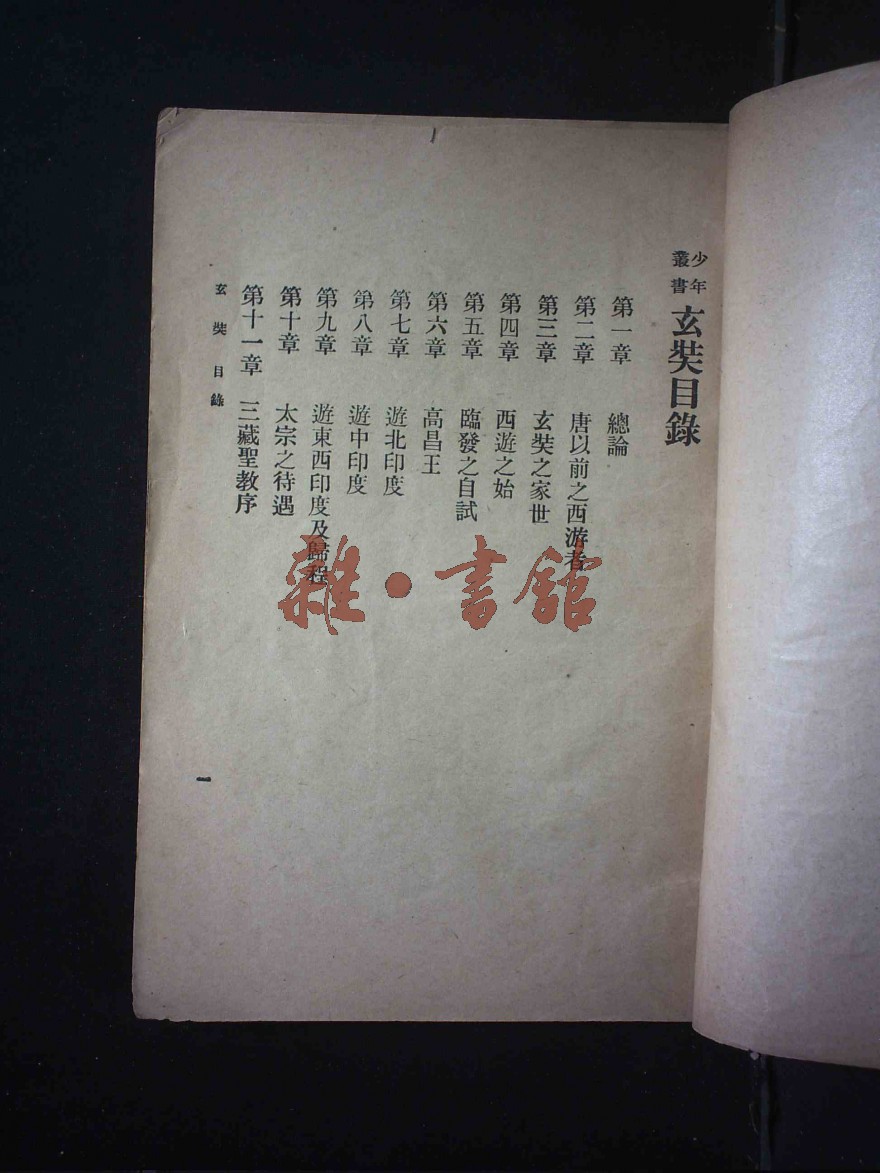 少年叢書 玄奘目錄
第一章 總論
第二章 唐以前之西游者
第三章 玄奘之家世
第四章 西遊之始
第五章 臨發之自試
第六章 高昌王
第七章 遊北印度
第八章 遊中印度
第九章 遊東西印度及歸程
第十章 太宗之待遇
第十一章 三藏聖教序
玄奘目錄
一
雜·書館